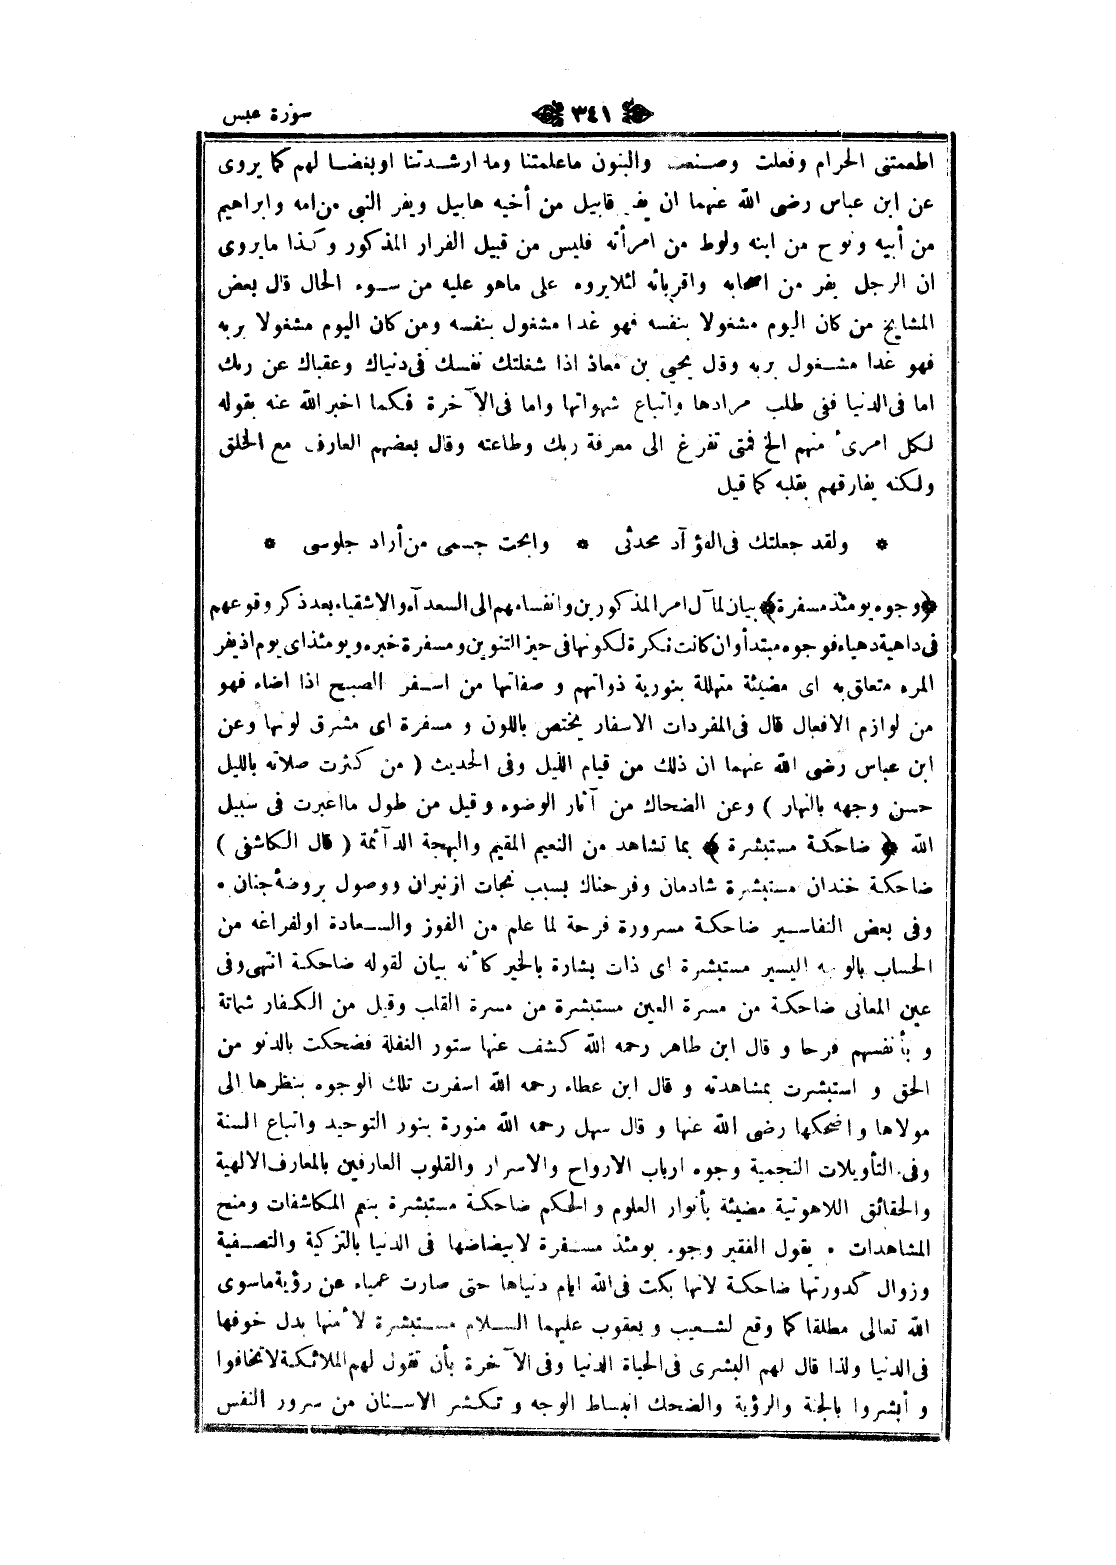 سورة عبس
٣٤١
اطعمتنى الحرام وفعلت وصنعت والبنون ماعلمتنا وما ارشدتنا اوبغضا لهم كما يروى
عن ابن عباس رضى الله عنهما ان يفر قابيل من أخيه هابيل ويفر النبى من امه وابراهيم
من أبيه ونوح من ابنه ولوط من امرأته فليس من قبيل الفرار المذكور وكذا مايروى
ان الرجل يفر من اصحابه واقربائه لئلايروه على ماهو عليه من سوء الحال قال بعض
المشايخ من كان اليوم مشغولا بنفسه فهو غدا مشغول بنفسه ومن كان اليوم مشغولا بربه
فهو غدا مشغول بربه وقال يحيى بن معاذ اذا شغلتك نفسك فى دنياك وعقباك عن ربك
اما فى الدنيا ففى طلب مرادها واتباع شهواتها واما فى الآخرة فكما اخبر الله عنه بقوله
لكل امرئ منهم الخ فمتى تفرغ الى معرفة ربك وطاعته وقال بعضهم العارف مع الخلق
ولكنه يفارقهم بقلبه كما قيل
* ولقد جعلتك فى الفؤآد محدثى * وابحت جسمى من أراد جلوسى *
﴿وجوه يومئذ مسفرة﴾ بيان لمآل امر المذكورين وانقسامهم الى السعدآء والاشقياء بعد ذكر وقوعهم
فى داهية دهياء فوجوه مبتدأ وان كانت نكرة لكونها فى حيز التنوين ومسفرة خبره ويومئذ اى يوم اذ يفر
المرء متعلق به اى مضيئة متهللة بنورية ذواتهم و صفاتها من اسفر الصبح اذا اضاء فهو
من لوازم الافعال قال فى المفردات الاسفار يختص باللون و مسفرة اى مشرق لونها وعن
ابن عباس رضى الله عنهما ان ذلك من قيام الليل وفى الحديث ( من كثرت صلاته بالليل
حسن وجهه بالنهار ) وعن الضحاك من آثار الوضوء وقيل من طول مااغبرت فى سبيل
الله ﴿ ضاحكة مستبشرة ﴾ بما تشاهد من النعيم المقيم والبهجة الدآئمة ( قال الكاشفى )
ضاحكة خندان مستبشرة شادمان وفرحناك بسبب نجات از نيران ووصول بروضۀ جنان •
وفى بعض التفاسير ضاحكة مسرورة فرحة لما علم من الفوز والسعادة اولفراغه من
الحساب اليسير مستبشرة اى ذات بشارة بالخير كأنه بيان لقوله ضاحكة انتهى وفى
عين المعانى ضاحكة من مسرة العين مستبشرة من مسرة القلب وقيل من الكفار شماتة
و بأنفسهم فرحا و قال ابن طاهر رحمه الله كشف عنها ستور الغفلة فضحكت بالدنو من
الحق و استبشرت بمشاهدته و قال ابن عطاء رحمه الله اسفرت تلك الوجوه بنظرها الى
مولاها واضحكها رضى الله عنها و قال سهل رحمه الله منورة بنور التوحيد واتباع السنة
وفى التأويلات النجمية وجوه ارباب الارواح والاسرار والقلوب العارفين بالمعارف الالهية
والحقائق اللاهوتية مضيئة بأنوار العلوم والحكم ضاحكة مستبشرة بنعم المكاشفات ومنح
المشاهدات • يقول الفقير وجوه يومئذ مسفرة لابيضاضها فى الدنيا بالتزكية والتصفية
وزوال كدورتها ضاحكة لانها بكت فى الله ايام دنياها حتى صارت عمياء عن رؤية ماسوى
الله تعالى مطلقا كما وقع لشعيب و يعقوب عليهما السلام مستبشرة لأنها بدل خوفها
فى الدنيا ولذا قال لهم البشرى فى الحياة الدنيا وفى الآخرة بأن تقول لهم الملائكة لاتخافوا
و أبشروا بالجنة والرؤية والضحك انبساط الوجه و تكشر الاسنان من سرور النفس